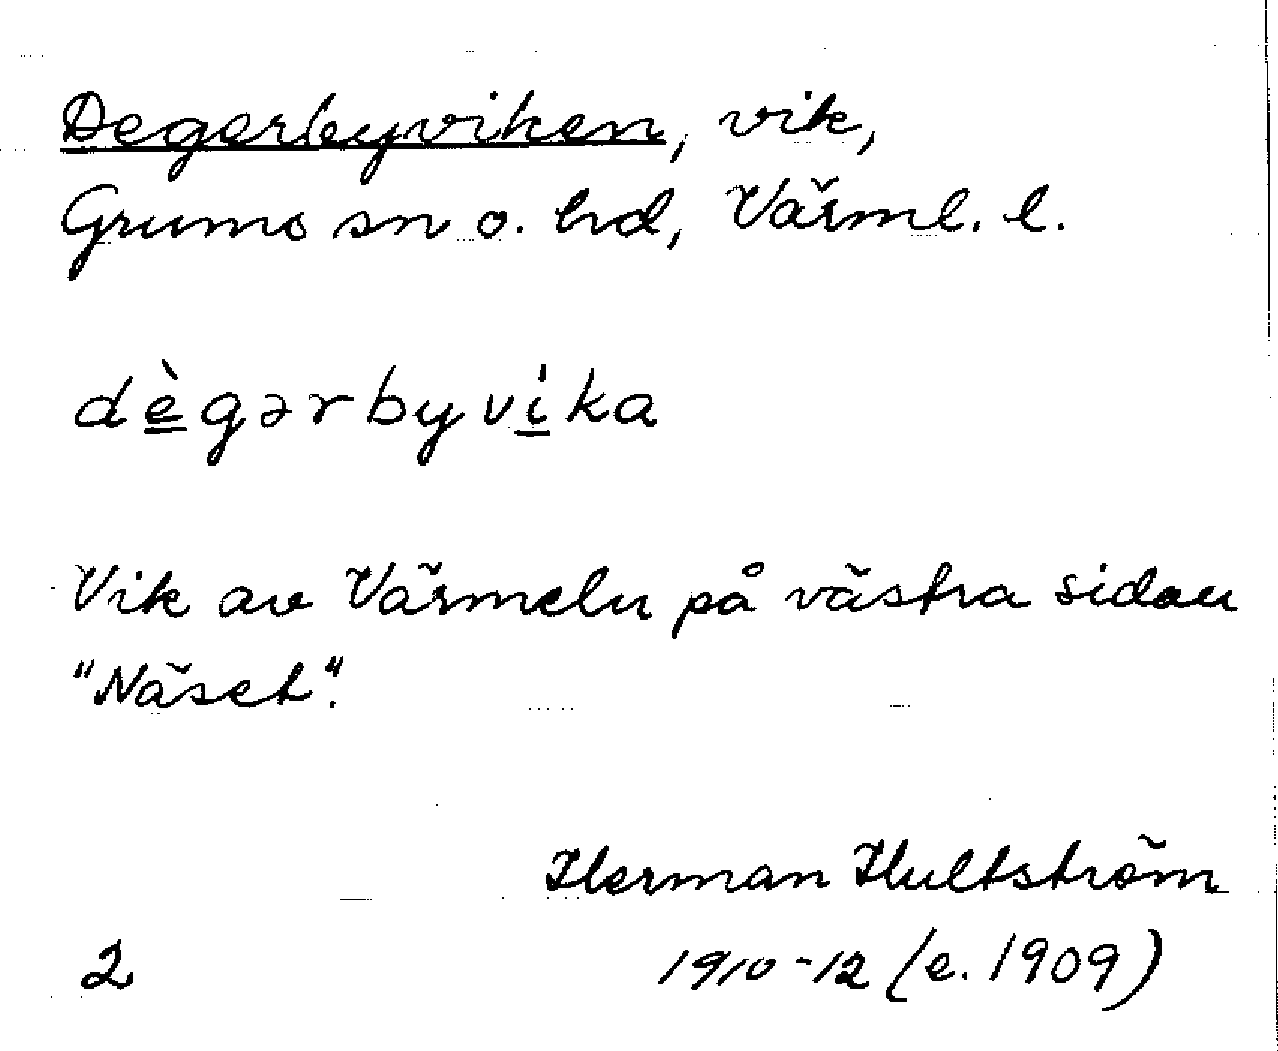 Degerbyviken, vik,
Grums sn o. hd, Värml. l.
dègərbyvika
Vik av Värmeln på västra sidan
"Näset".
Herman Hultström
2 1910-12 (e. 1909)